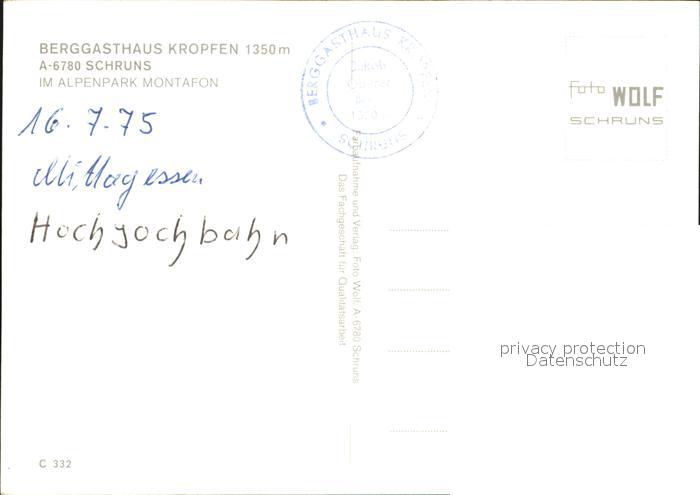 BERGGASTHAUS KROPFEN 1350 m
A-6780 SCHRUNS
IM ALPENPARK MONTAFON
16.7.75
Mittagessen
Hochjochbahn
BERGGASTHAUS
SCHRUNS
foto WOLF
SCHRUNS
Farbaufnahme und Verlag: Foto Wolf, A-6780 Schruns
Das Fachgeschäft für Qualitätsarbeit
privacy protection
Datenschutz
C 332